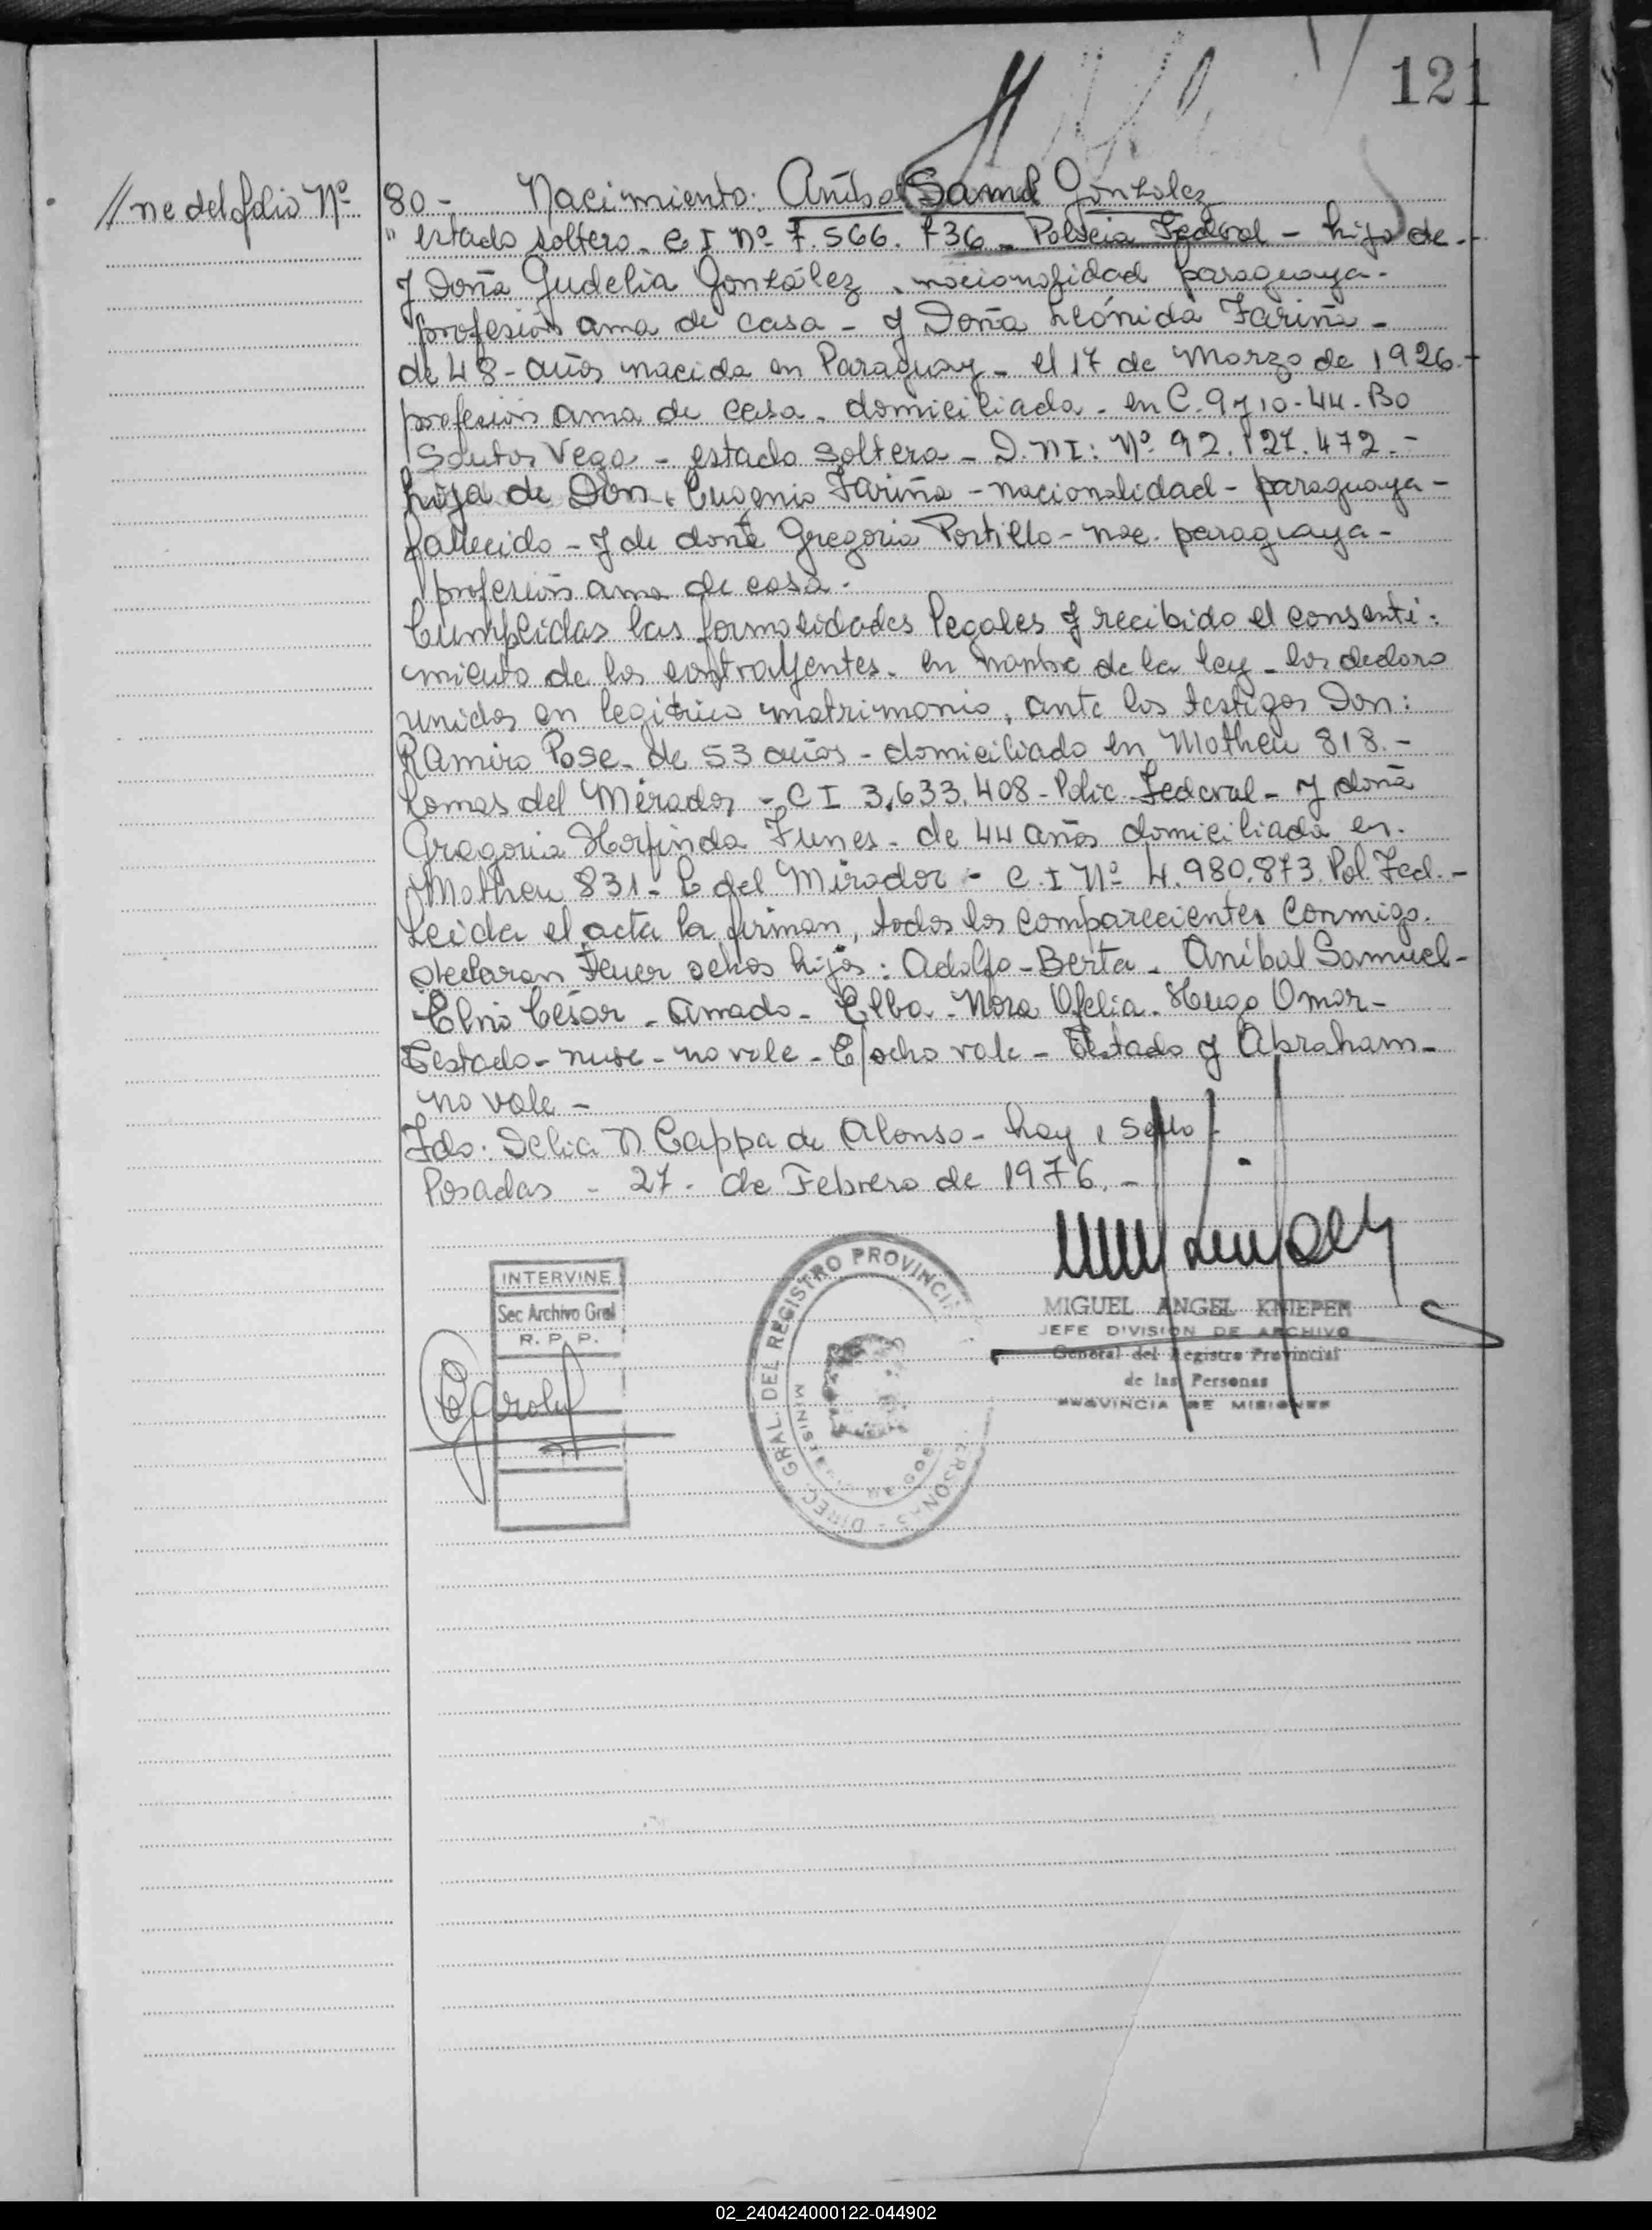 121
//ne del folio Nº 80 -. Nacimiento: Aníbal Samuel González
" estado soltero - C I Nº 7.566.736 - Policia Federal - hijo de -
y Doña Gudelia González - nacionalidad paraguaya -
profesión ama de casa - y Doña Leónida Fariña -
de 48 - años nacida en Paraguay - el 17 de Marzo de 1926 -
profesión ama de casa - domiciliada - en C. 9 y 10 - 44 - Bo
Santos Vega - estado soltera - D. NI: Nº 92.127.472 . -
hija de Don Eugenio Fariña - nacionalidad - paraguaya -
fallecido - y de doña Gregoria Portillo - nac. paraguaya -
profesión ama de casa -
Cumplidas las formalidades legales y recibido el consenti-
miento de los contrayentes - en nombre de la ley - los declaro
unidos en legítimo matrimonio, ante los testigos Don:
Ramiro Pose - de 53 años - domiciliado en Matheu 818 . -
Lomas del Mirador - C I 3.633.408 - Polic. Federal - y doña
Gregoria Funes - de 44 años domiciliada en -
Matheu 831 - L del Mirador - C. I Nº 4.980.873 Pol. Fed. -
Leida el acta la firman, todos los comparecientes conmigo.
Declaran tener ochos hijos: Adolfo - Berta - Aníbal Samuel -
César - Amado - Elba - Nora Ofelia - Hugo Omar -
Testado - - no vale - E/ocho vale - Testado y Abraham -
no vale -
Fdo: Delia N Cappa de Alonso - hay 1 sello -
Posadas - 27 - de Febrero de 1976. -
INTERVINE
Sec Archivo Gral
R. P. P.
DIREC. GRAL. DEL REGISTRO PROVINCIAL
PERSONAS
MIGUEL ANGEL KNIEPER
JEFE DIVISION DE ARCHIVO
General del Registro Provincial
de las Personas
PROVINCIA DE MISIONES
02_240424000122-044902